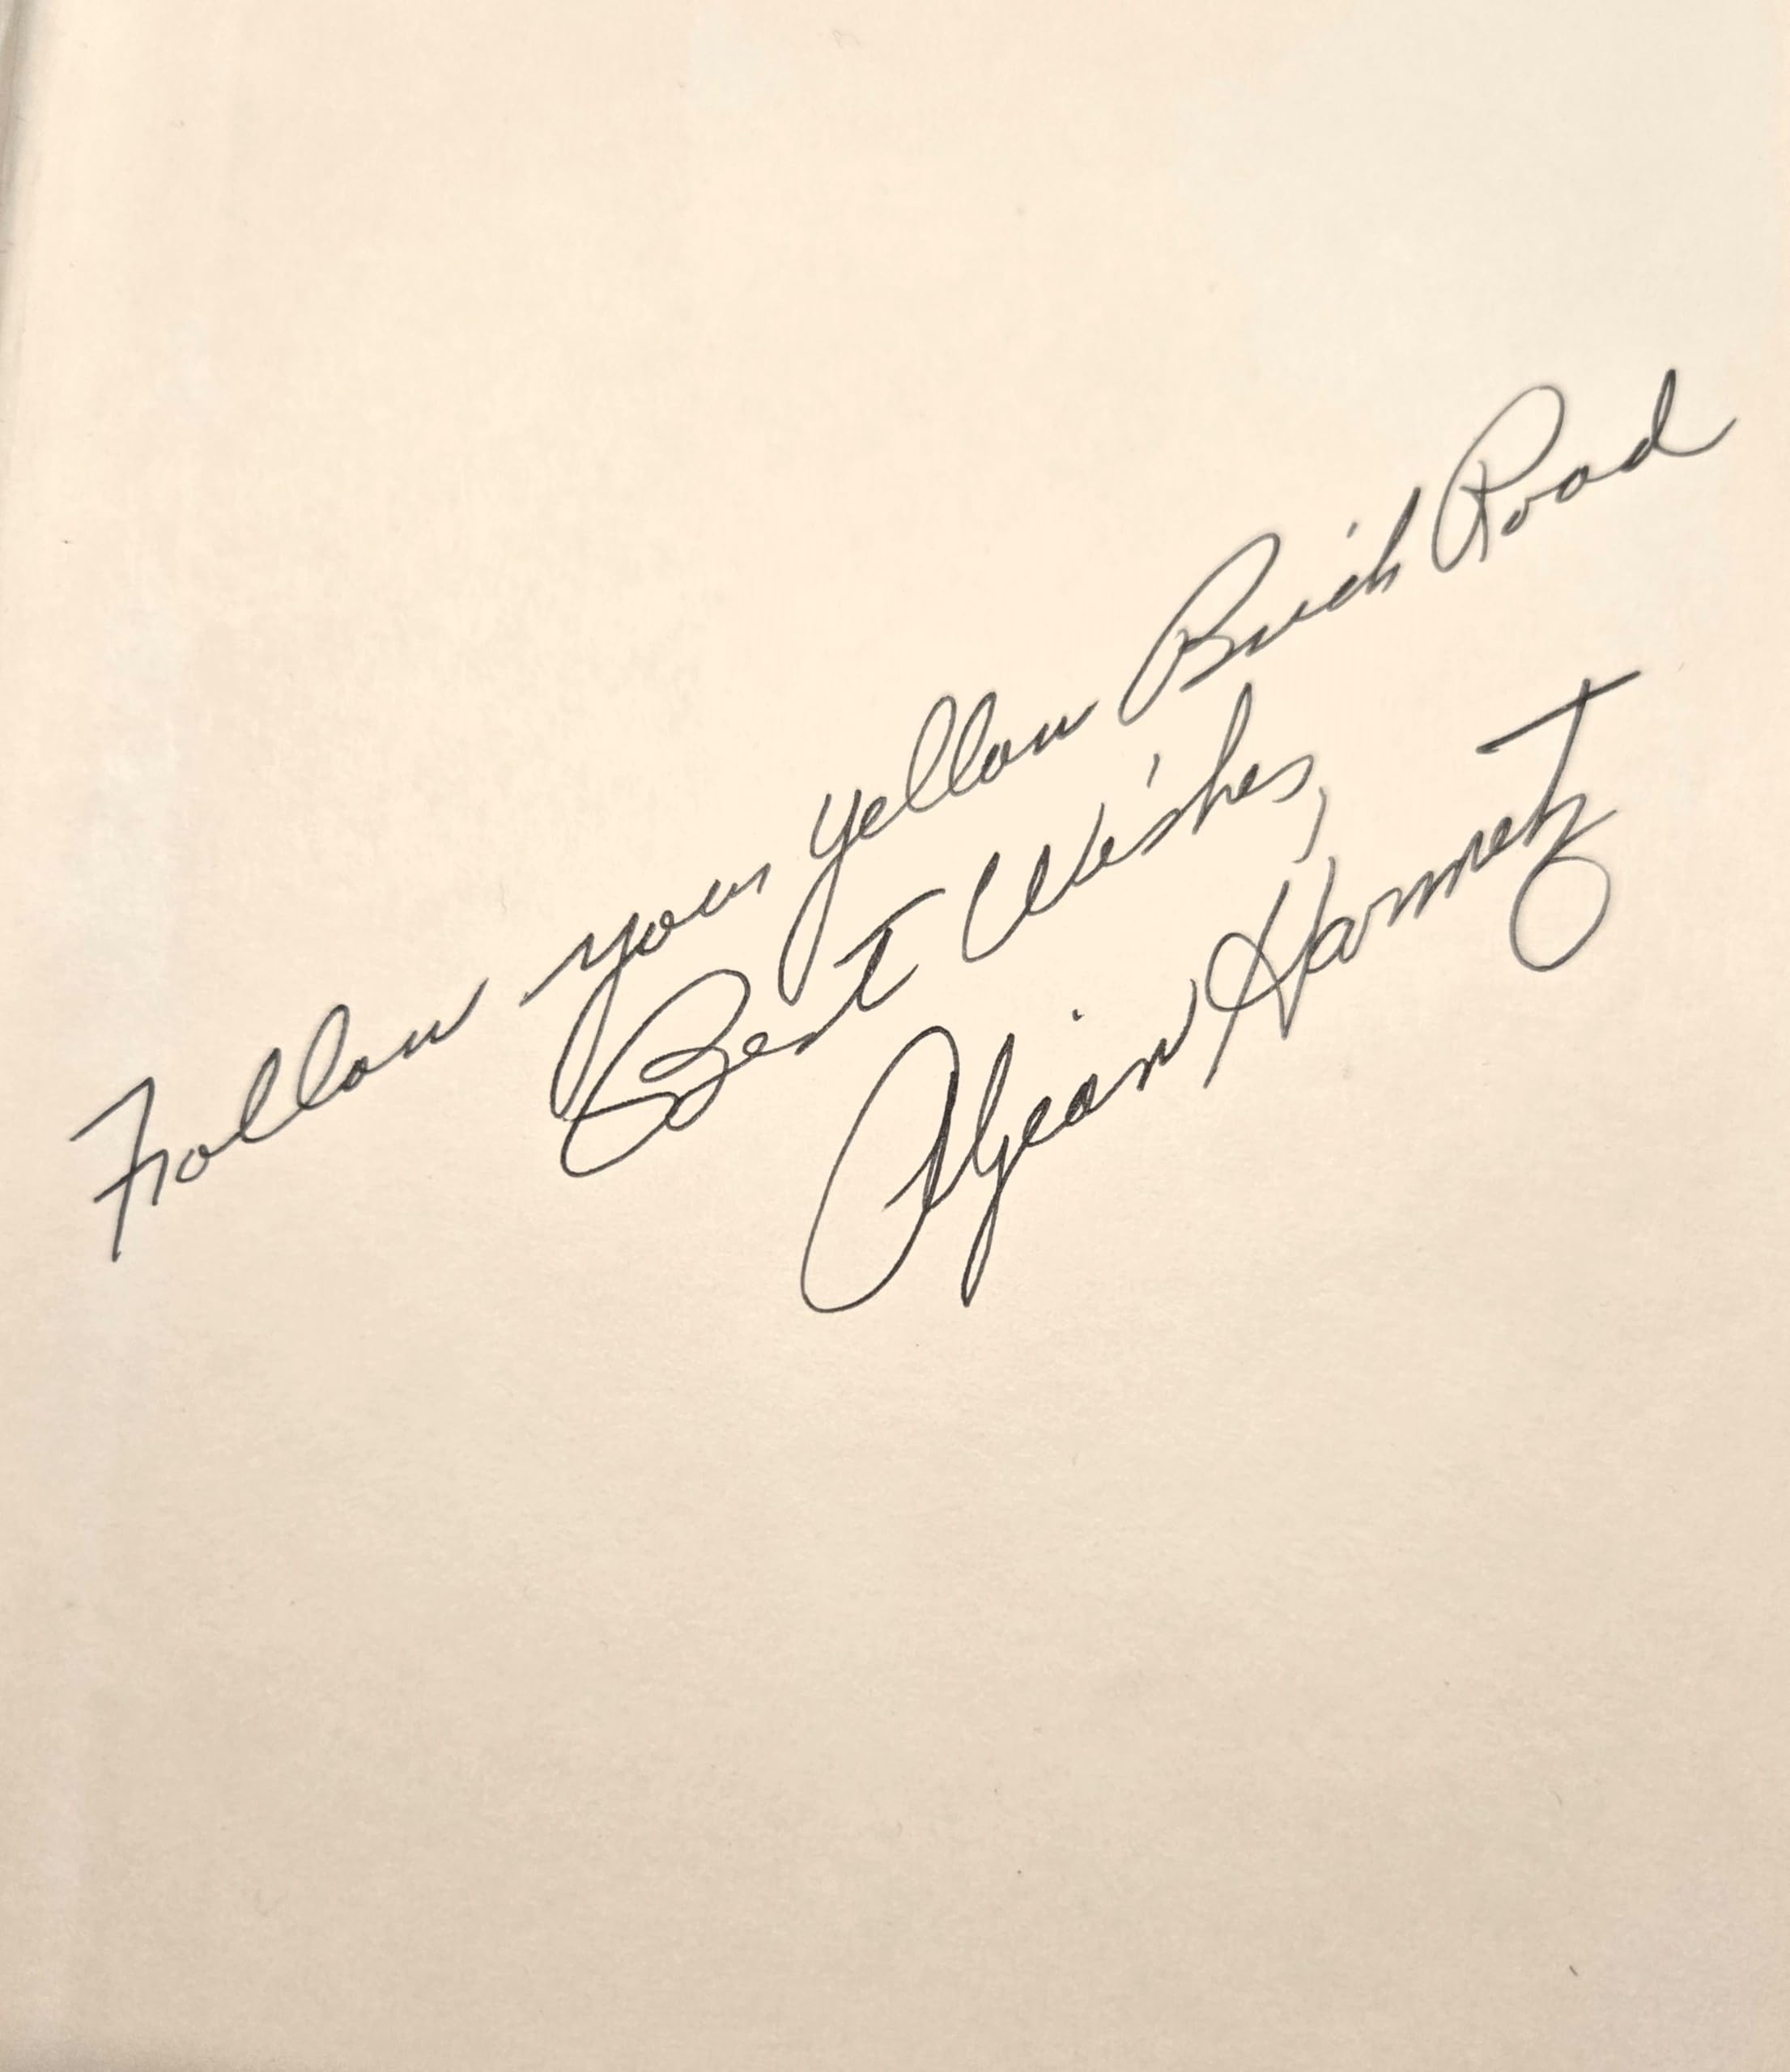 Follow your yellow Brick Road
Best Wishes,
Aljean Harmetz